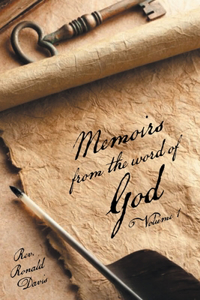 Memoirs
from the word of
God
Volume 1
Rev.
Ronald
Davis